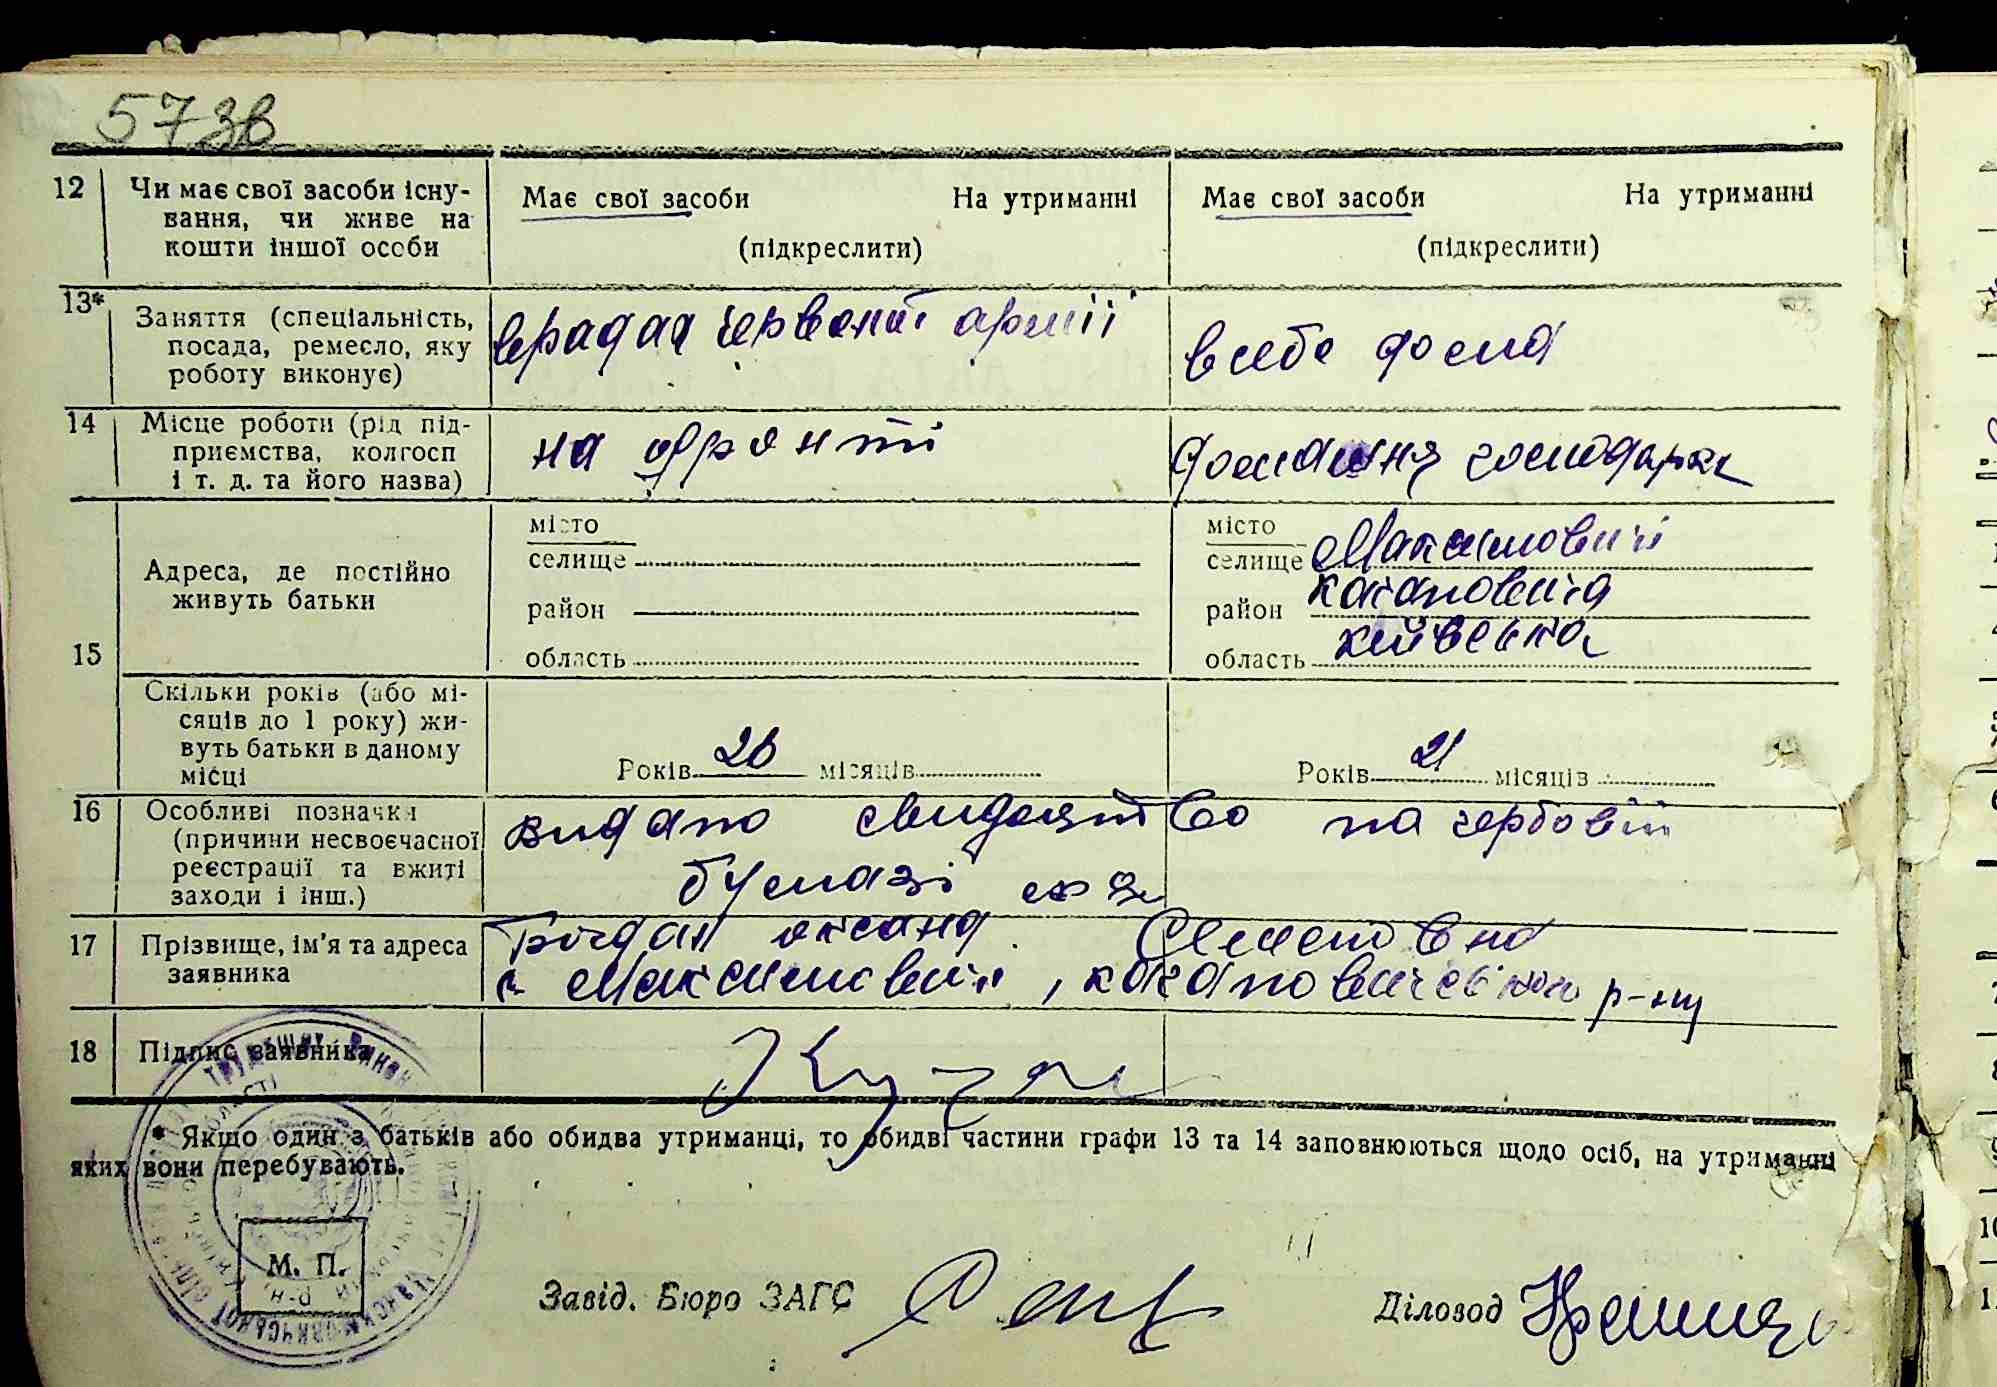 573в
12 Чи має свої засоби існу- Має свої засоби На утриманні Має свої засоби На утриманні
вання, чи живе на
кошти іншої особи (підкреслити) (підкреслити)
13* Заняття (спеціальність, в рядах червоної армії
посада, ремесло, яку в себе дома
роботу виконує)
14 Місце роботи (рід під- на фронті
приємства, колгосп домашня господарка
і т. д. та його назва)
місто місто
селище селище Максимовичі
Адреса, де постійно
живуть батьки район район
15 область область київська
Скільки років (або мі-
сяців до 1 року) жи-
вуть батьки в даному
місці Років 26 місяців Років 21 місяців
16 Особливі позначки видано на гербовій
(причини несвоєчасної
реєстрації та вжиті бумазі
заходи і інш.)
17 Прізвище, ім'я та адреса Богдан оксана
заявника с Максимовичі, р-ну
18 Підпис заявника
* Якщо один з батьків або обидва утриманці, то обидві частини графи 13 та 14 заповнюються щодо осіб, на утриманні
яких вони перебувають.
М. П.
Завід. Бюро ЗАГС Діловод